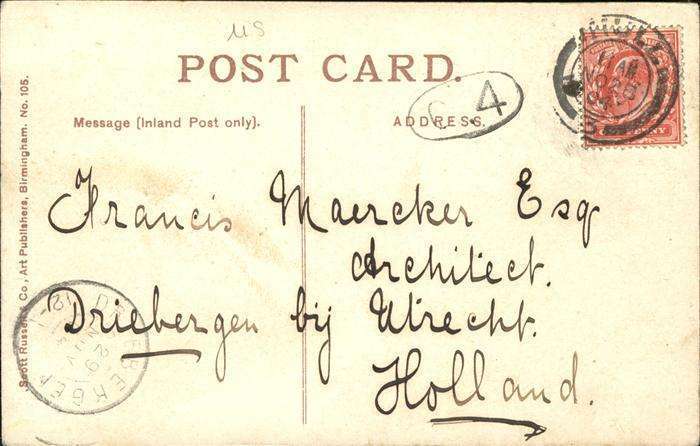 MS
POST CARD.
C.4
Message (Inland Post only).
ADDRESS.
Francis Maercker Esq
Architect.
Driebergen bij Utrecht.
Holland.
Scott Russell & Co, Art Publishers, Birmingham. No. 105.
DRIEBERGEN